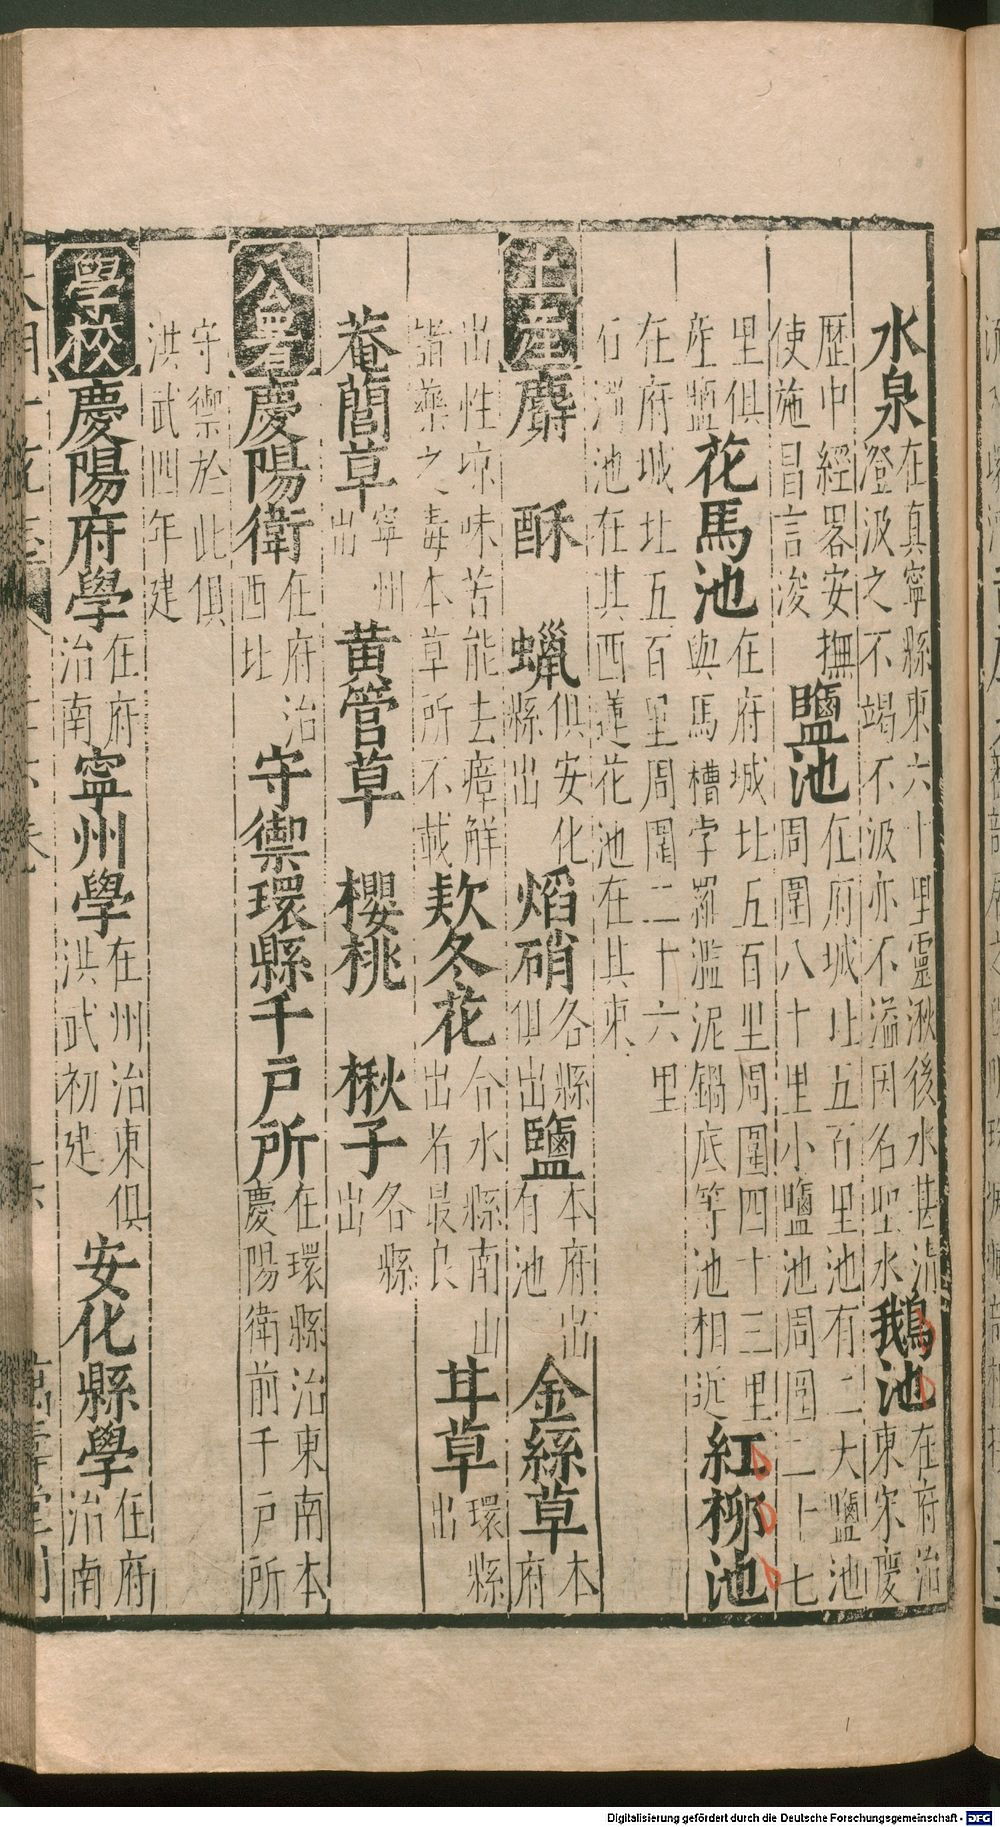 水泉在真寧縣東六十里靈湫後水甚清澄汲之不竭不汲亦不溢因名聖水鵝池在府治東宋慶
歷中經畧安撫使施昌言浚鹽池在府城北五百里池有二大鹽池周圍八十里小鹽池周圍二十七
里俱產鹽花馬池在府城北五百里周圍四十三里與馬槽孛羅濫泥鍋底等池相近紅柳池
在府城北五百里周圍二十六里石溝池在其西蓮花池在其東
土產麝 酥 蠟俱安化縣出 熖硝各縣俱出鹽本府出有池 金絲草本府
出性凉味苦能去瘴解諸藥之毒本草所不載欵冬花合水縣南山出者最良 茸草環縣出
菴䕡草寧州出 黃管草 櫻桃 楸子各縣出
公署慶陽衛在府治西北 守禦環縣千戶所在環縣治東南本慶陽衛前千戶所
守禦於此俱洪武四年建
學校慶陽府學在府治南 寧州學在州治東俱洪武初建 安化縣學在府治南
萬壽堂刊
Digitalisierung gefördert durch die Deutsche Forschungsgemeinschaft - DFG